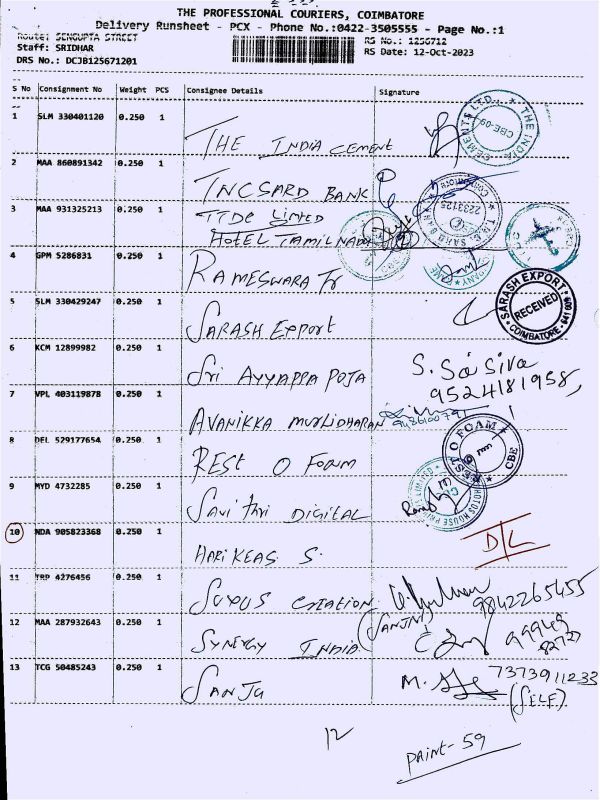 THE PROFESSIONAL COURIERS, COIMBATORE
Delivery Runsheet - PCX - Phone No.:0422-3505555 - Page No.:1
Route: SENGUPTA STREET
RS No.: 1256712
Staff: SRIDHAR
RS Date: 12-Oct-2023
DRS No.: DCJB125671201
S No Consignment No Weight PCS Consignee Details Signature
1 SLM 330401120 0.250 1 THE INDIA CEMENT
THE INDIA CEMENTS LTD. CBE-09
2 MAA 860891342 0.250 1 TNCSARD BANK
2233125
3 MAA 931325213 0.250 1 TTDC LIMITED
HOTEL TAMILNADU
4 GPM 5286831 0.250 1 RAMESWARA Tr
5 SLM 330429247 0.250 1 SARASH EXPORT
SARASH EXPORT RECEIVED COIMBATORE - 641 009
6 KCM 12899982 0.250 1 Sri AYYAPPA POJA
S. Sa Siva
9524181958,
7 VPL 403119878 0.250 1 AVANIKKA MURLIDHARAN
8 DEL 529177654 0.250 1 REST O Foam
REST O FOAM CBE
9 MYD 4732285 0.250 1 Savithri DIGITAL
10 NDA 905823368 0.250 1 HARIKEAS S.
D/L
11 TRP 4276456 0.250 1 SUXUS CREATION
9842265455
12 MAA 287932643 0.250 1 SYNERGY INDIA
(SANJAI)
99949
82727
13 TCG 50485243 0.250 1 SANJU
7373911233
(SELF)
12
PAINT-59